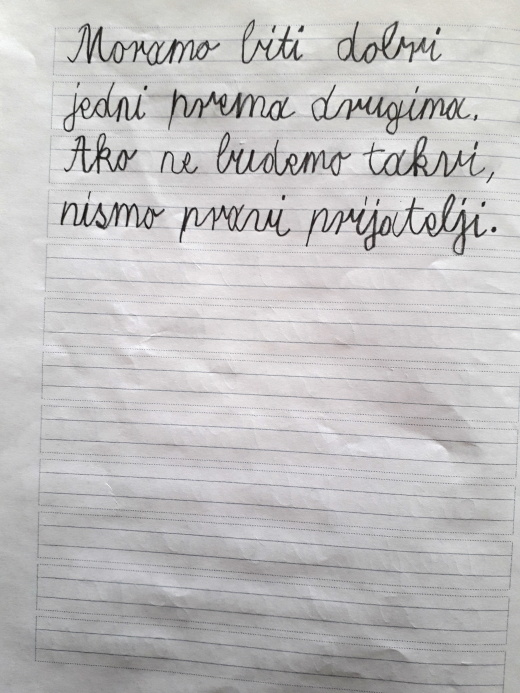 Moramo biti dobri
jedni prema drugima.
Ako ne budemo takvi,
nismo pravi prijatelji.